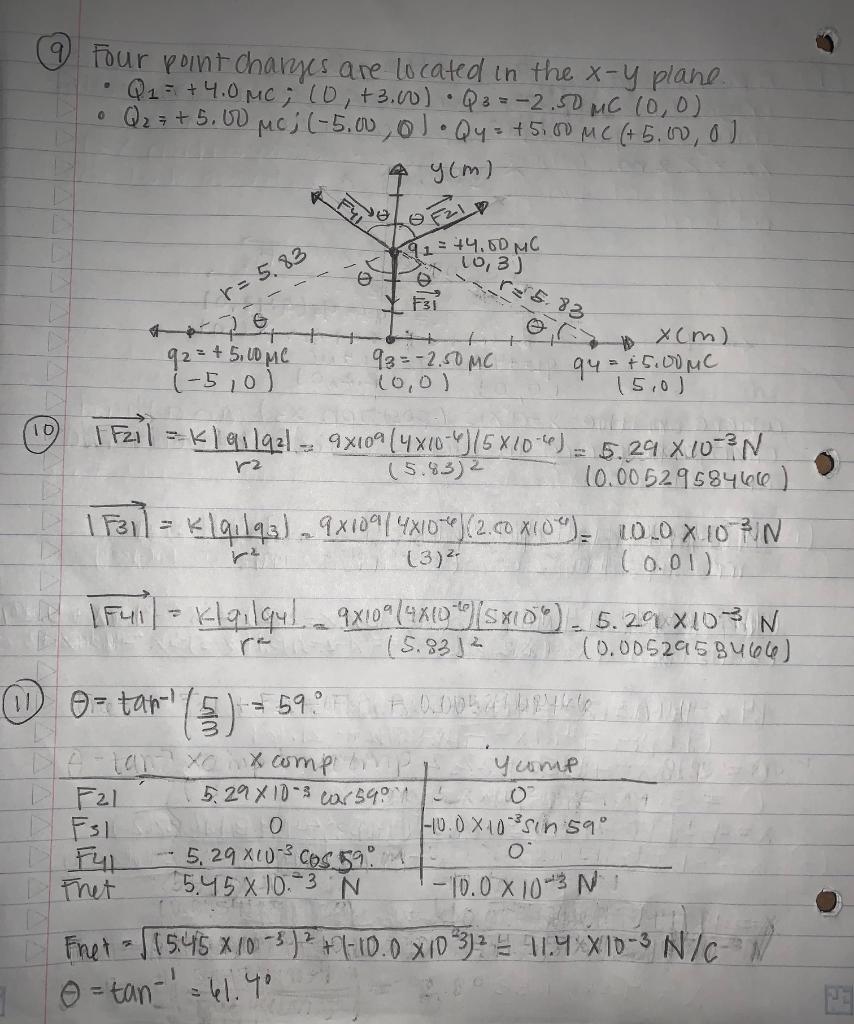 9 Four point charges are located in the x-y plane.
• Q1 = +4.0 μC ; (0, +3.00) • Q3 = -2.50 μC (0,0)
• Q2 = +5.00 μC ; (-5.00, 0) • Q4 = +5.00 μC (+5.00, 0)
y(m)
F41 θ θ F21
q1 = +4.00 μC
(0,3)
r = 5.83 θ θ r = 5.83
F31
θ θ x(m)
q2 = +5.00 μC q3 = -2.50 μC q4 = +5.00 μC
(-5,0) (0,0) (5,0)
10 |F21| = K|q1|q2| = 9x10^9(4x10^-6)(5x10^-6) = 5.29 x10^-3 N
r^2 (5.83)^2 (0.0052958466)
|F31| = K|q1|q3| = 9x10^9(4x10^-6)(2.50x10^-6) = 10.0 x 10^-3 N
r^2 (3)^2 (0.01)
|F41| = K|q1|q4| = 9x10^9(4x10^-6)(5x10^-6) = 5.29 x10^-3 N
r^2 (5.83)^2 (0.0052958466)
11 θ = tan^-1 (5/3) = 59°
x comp y comp
F21 5.29x10^-3 cos 59° 0
F31 0 -10.0x10^-3 sin 59°
F41 - 5.29x10^-3 cos 59° 0
Fnet 5.45x10^-3 N -10.0x10^-3 N
Fnet = √(5.45 x10^-3)^2 + (-10.0 x10^-3)^2 = 11.4 x10^-3 N/C
θ = tan^-1 = 61.4°